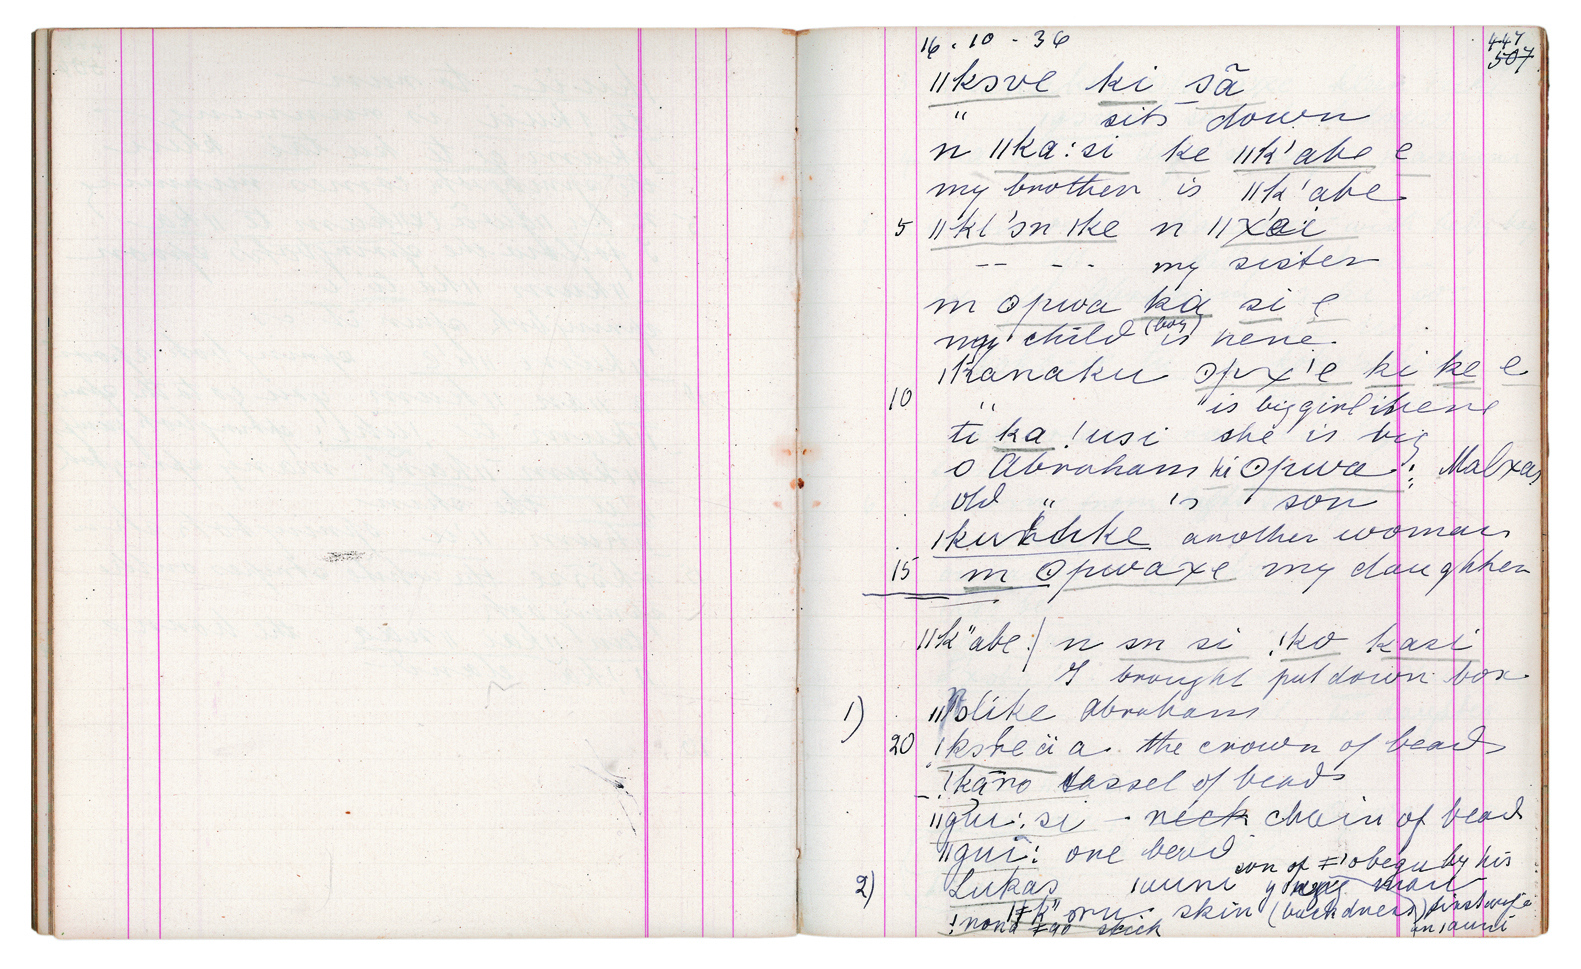 16.10-36
447
507
ǁkɔve ki sã
" sits down
n ǁka:si ke ǁk'abe e
my brother is ǁk'abe
5 ǁkl'ɔn ǀke n ǁxai
-- - - my sister
m ʘpwa ka si e
my child (boy) is here
ǀkanaku ʘpx'e ki ke e
10 " " is big girl is here
ti ka !usi she is big
o Abraham ki ʘpwa : Malxas
old " is son
another woman
15 m ʘpwaxe my daughter
ǁk"abe / n ɔn si !ko kasi
I brought put down box
1) olike Abraham
20 !kɔheäa the crown of beads
- !kãno tassel of beads
ǁgui:si - neck chain of bead
ǁgui: one bead
2) Lukas ǀauni young man son of ǂ'obegu by his
skin (back dress) first wife
!nona ǂao stick an ǀauni